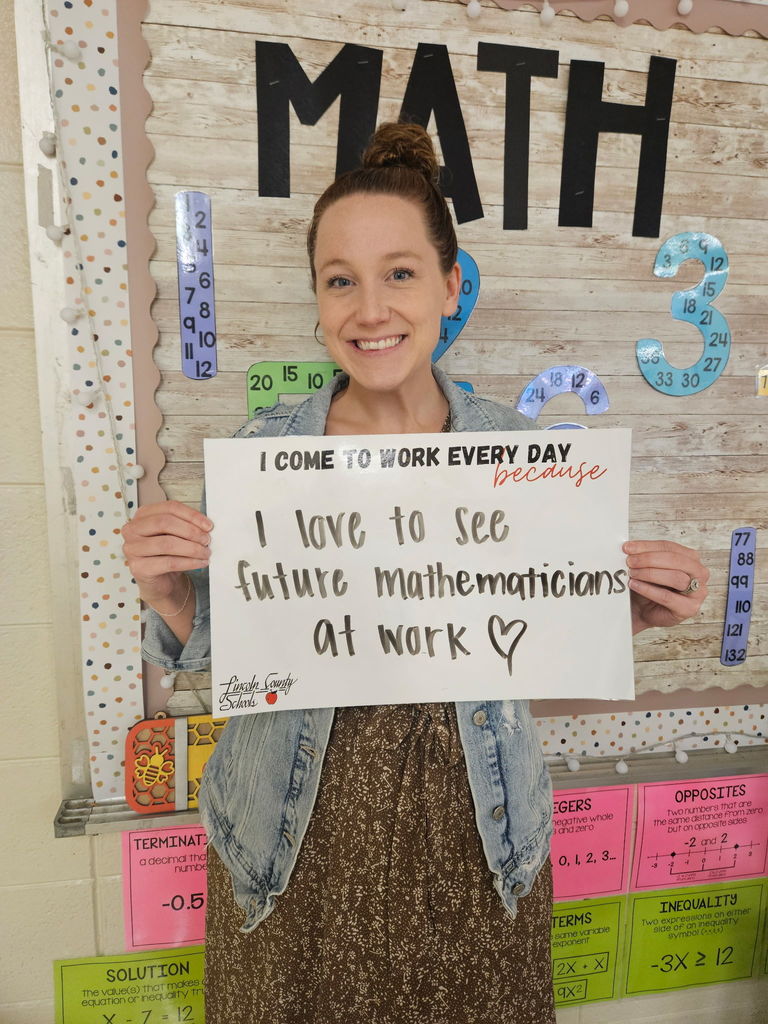 MATH
1
2
3
4
5
6
7
8
9
10
11
12
20 15 10
24 18 12 6
3 6 9
12
15
18
21
24
27
30
33
77
88
99
110
121
132
I COME TO WORK EVERY DAY
because
I love to see
future mathematicians
at work ♡
Lincoln County
Schools
TERMINATI
a decimal tha
number
-0.5
SOLUTION
The value(s) that makes
equation or inequality tru
x - 7 = 12
EGERS
negative whole
s and zero
0, 1, 2, 3...
OPPOSITES
Two numbers that are
the same distance from zero
but on opposite sides
-2 and 2
-3 -2 -1 0 1 2 3
TERMS
same variable
exponent
2X + X
9X²
INEQUALITY
Two expressions on either
side of an inequality
symbol
-3X ≥ 12